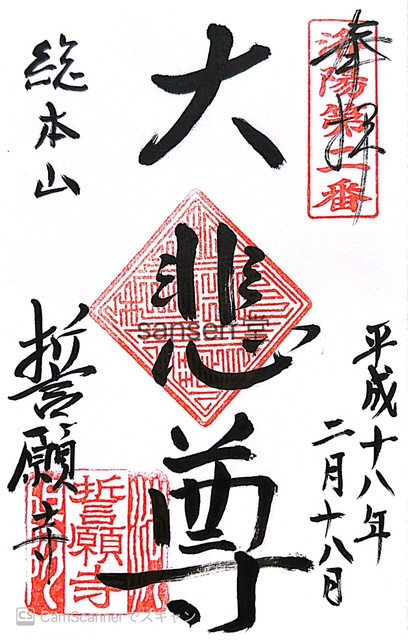 奉拝
洛陽第二番
平成十八年
二月十八日
大悲尊
総本山
誓願寺
誓願寺
sansen堂
CS CamScannerでスキャン